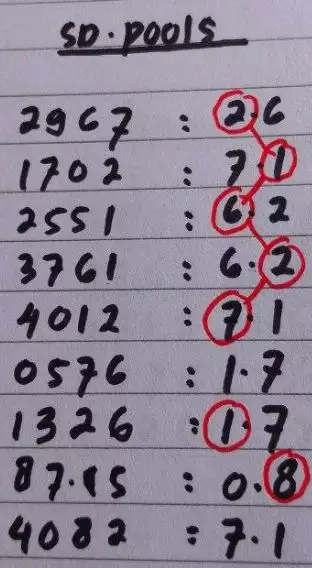 SD.POOLS
2967 : 2.6
1702 : 7.1
2551 : 6.2
3761 : 6.2
4012 : 7.1
0576 : 1.7
1326 : 1.7
87.15 : 0.8
4082 : 7.1